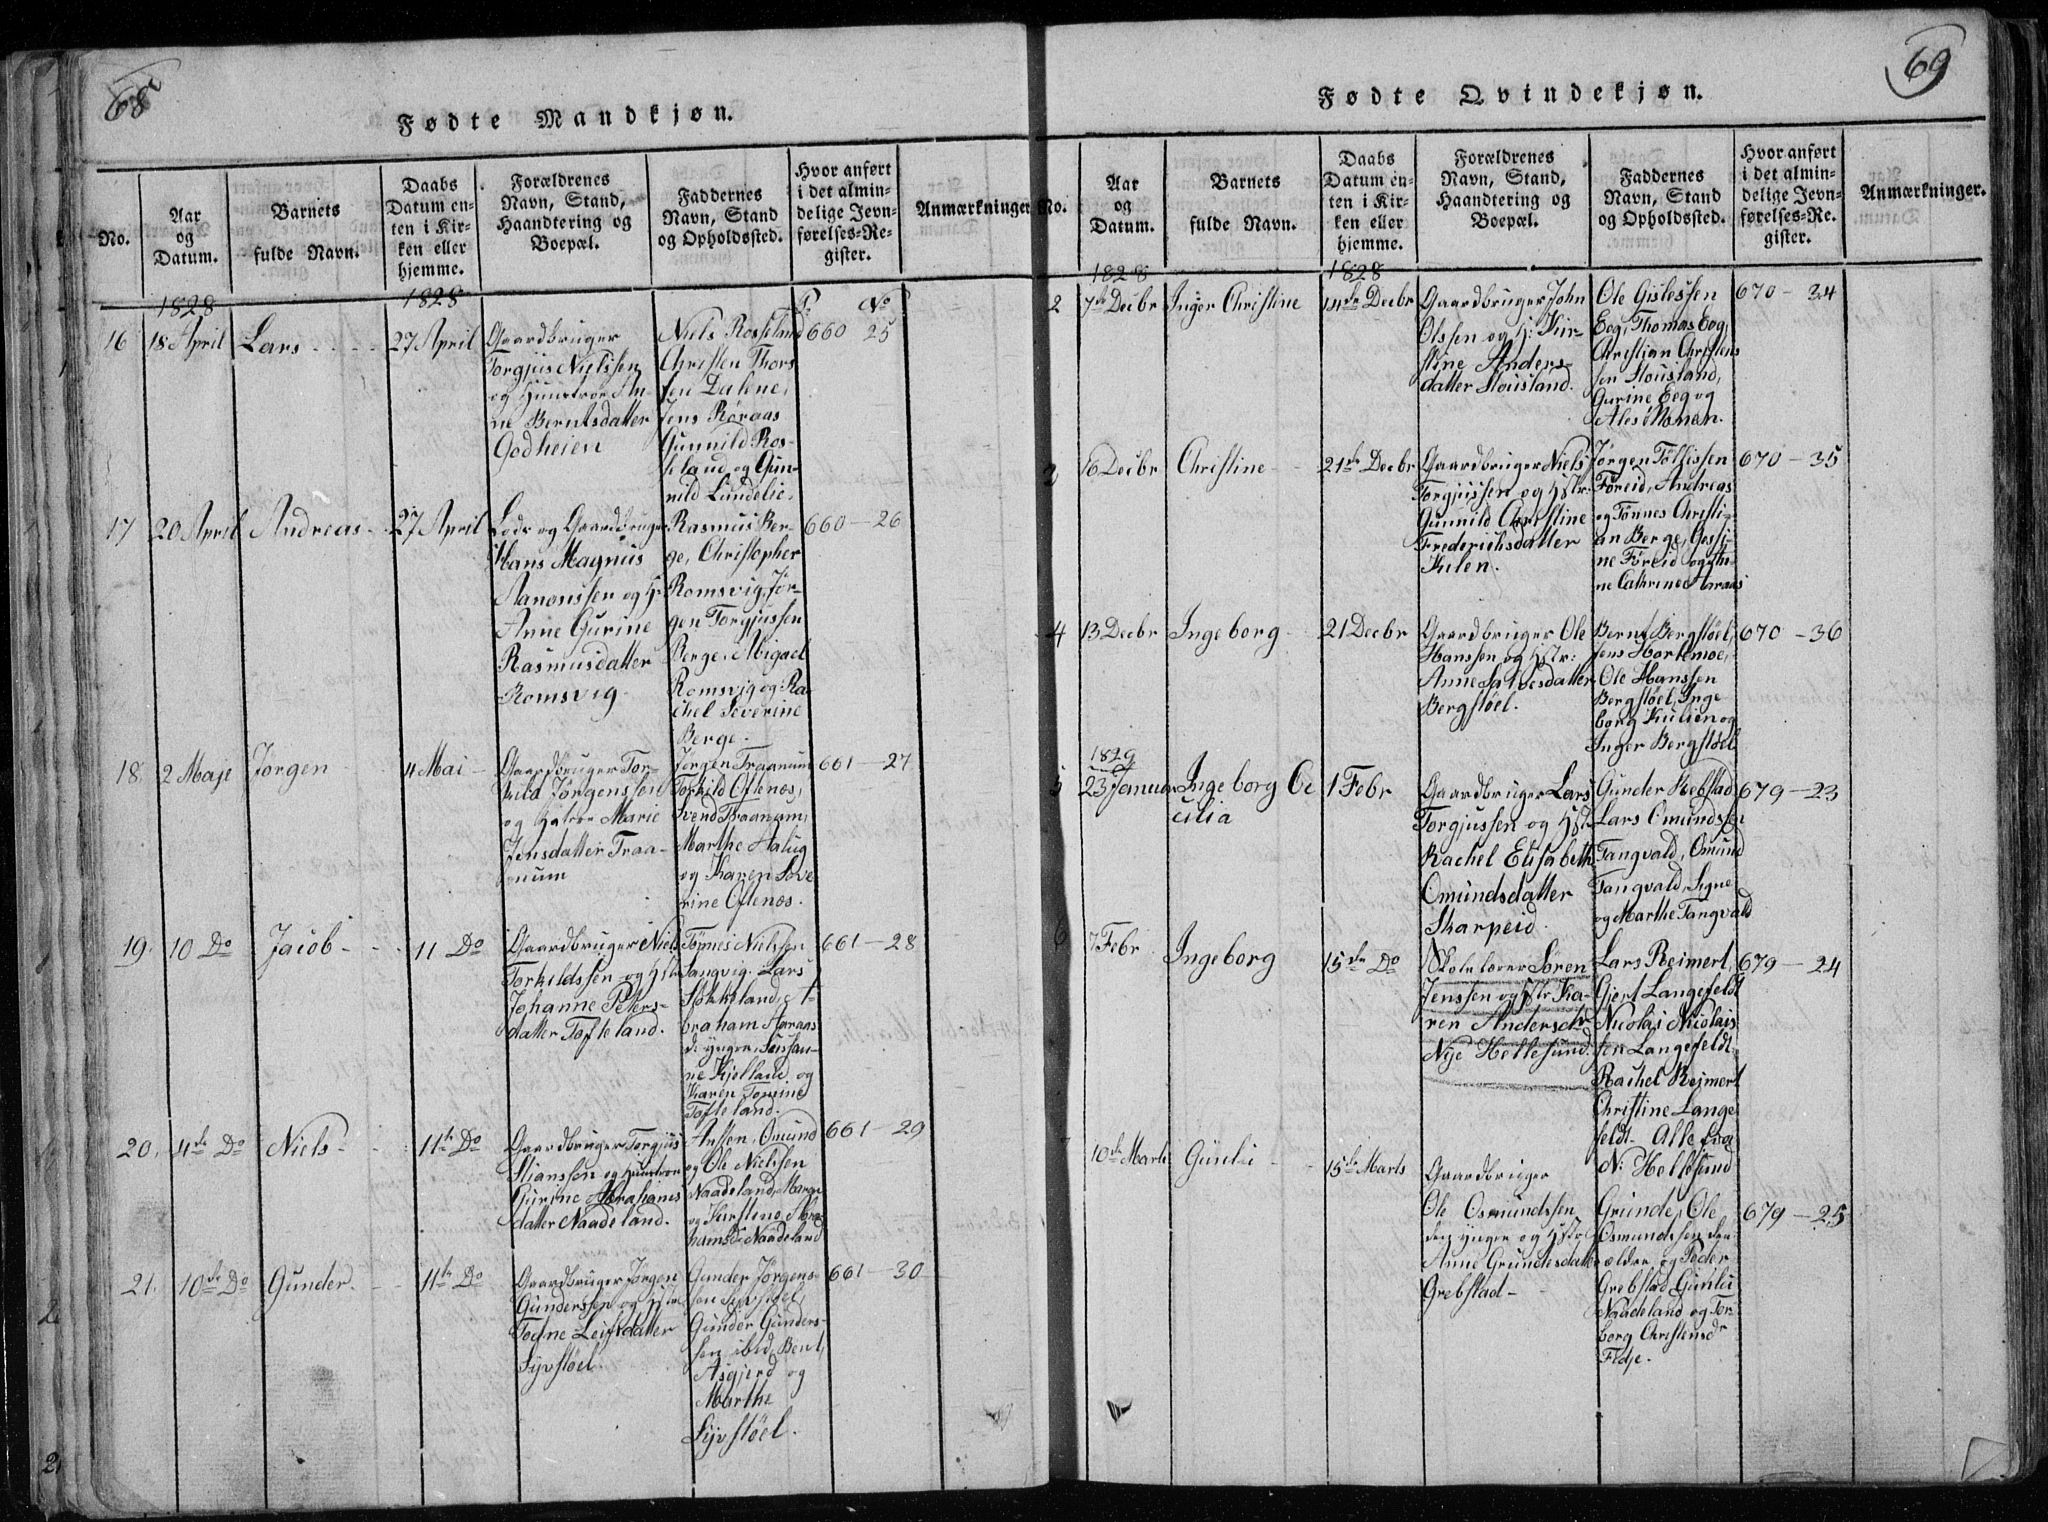 68
Fødte Mandkjøn.
No.
Aar
og
Datum.
Barnets
fulde Navn.
Daabs
Datum en-
ten i Kir-
ken eller
hjemme.
Forældrenes
Navn, Stand,
Haandtering og
Boepæl.
Faddernes
Navn, Stand
og Opholdssted.
Hvor anført
i det almin-
delige Jevn-
førelses-Re-
gister.
Anmærkninger
1828
1828
No
16
18 April
Lars
27 April
Gaardbruger
Torgjus Nielssen
og Hustroe An-
ne Berntsdatter
Godheien
Niels Rosseland
Christen Thors
sen Dalene,
Jens Røraas
Gunnild Ros-
seland og Gun-
nild Lundelie.
660 25
17
20 April
Andreas
27 April
Lods og Gaardbruger
Hans Magnus
Aanonssen og H:
Anne Gurine
Rasmusdatter
Romsvig
Rasmus Ber-
ge, Christopher
Romsvig, Jør-
gen Torgjussen
Berge, Abigael
Romsvig og Ra-
chel Severine
Berge.
660 - 26
18
2 Maje
Jørgen
4 Mai
Gaardbruger Tor-
kild Jørgenssen
og Hstroe Marie
Jensdatter Traa-
num
Jørgen Traanum
Torkild Oftenæs,
Svend Traanum,
Marthe Aalug
og Karen Seve
rine Oftenæs.
661 - 27
19.
10 Do
Jacob
11 Do
Gaardbruger Niels
Torkildssen og Hstr
Johanne Peters-
datter Tofteland.
Tønnes Nielssen
Langvig, Lars
Stokkeland, A-
braham Aaraas
de yngre, Sussan-
ne Kjelland og
Karen Tomine
Tofteland.
661 - 28
20.
4de Do
Niels
11te Do
Gaardbruger Torgjus
Stianssen og Hustroe
Gurine Abrahams
datter Naadeland.
Ansten, Omund
og Ole Nielssen
Naadeland, Maren
og Kirstene Abra
hamsd. Naadeland
661 - 29
21.
10de Do
Gunder
11te Do
Gaardbruger Jørgen
Gunderssen og Hstr
Todne Leifsdatter
Syvstøel.
Gunder Jørgens-
sen Syvstøel,
Gunder Gunders-
sen ibid, Bent,
Asgjerd og
Marthe
Syvstøel.
661 - 30
69
Fødte Qvindekjøn.
No.
Aar
og
Datum.
Barnets
fulde Navn.
Daabs
Datum en-
ten i Kir-
ken eller
hjemme.
Forældrenes
Navn, Stand,
Haandtering og
Boepæl.
Faddernes
Navn, Stand
og Opholdssted.
Hvor anført
i det almin-
delige Jevn-
førelses-Re-
gister.
Anmærkninger.
1828
1828
2
7de Decbr
Inger Christine
14de Decbr
Gaardbruger John
Olssen og H: Kir-
stine Anders-
datter Stousland.
Ole Gislessen
Eeg, Thomas Eeg,
Christian Christens
sen Stousland,
Gurine Eeg og
670 - 34
3
6 Decbr
Christine
21de Decbr
Gaardbruger Niels
Torgjussen og Hstr.
Gunnild Christine
Frederichsdatter
Kulen.
Jørgen Tollissen
Føreid, Andreas
og Tønnes Christi-
an Berge, Gossi-
ne Føreid og An-
ne Cathrine Aaraas
670 - 35
4
13 Decbr
Ingeborg
21 Decbr
Gaardbruger Ole
Hanssen og Hstr:
Anne Salvesdatter
Bergstøel.
Bernt Bergstøel,
Jens Hortemoe,
Ole Hanssen
Bergstøel, Inge
borg Kulien og
Inger Bergstøel
670 - 36
1829
5
23 Januar
Ingeborg Ce
cilia
1 Febr
Gaardbruger Lars
Torgjussen og Hst.
Rachel Elisabeth
Omundsdatter
Skarpeid.
Gunder Rebstad
Lars Omundssen
Tangvald, Omund
Tangvald, Signe
og Marthe Tangvald
679 - 23
6
7 Febr
Ingeborg
15de Do
Skolelærer Søren
Jenssen og Hstr Ka-
ren Andersdtr
Nye Hellesund.
Lars Reimert,
Gjert Langefeldt
Nicolai Nicolais
sen Langefeldt,
Rachel Reimert
Christine Lange
feldt. Alle fra
N: Hellesund
679 - 24
10de Marts
Gunlu
15de Marts
Gaardbruger
Ole Osmundssen
den yngre og Hstr
Anne Grundesdatter
Grebstad
Grunde, Ole
Osmundssen den
ældre og Peder
Grebstad, Gunlu
Naadeland og Tor-
borg Christensdr
Fidje.
679 - 25